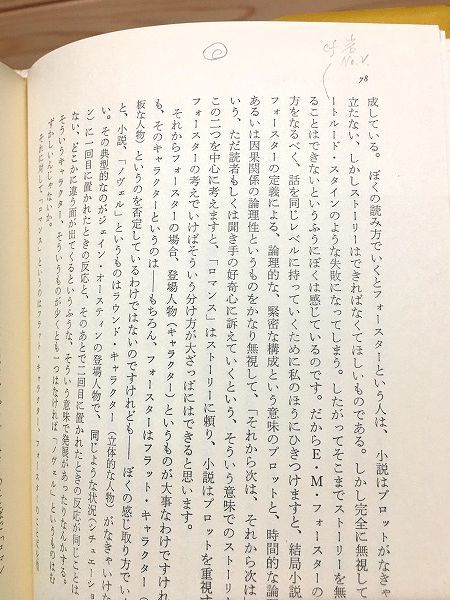 cf
No.V.
78
成している。ぼくの読み方でいくとフォースターという人は、小説はプロットがなきゃ
立たない、しかしストーリーはできればなくてほしいものである。しかし完全に無視して
ートルード・スタインのような失敗になってしまう。したがってそこまでストーリーを無
ることはできないというふうにぼくは感じているのです。だからE・M・フォースターの
方をなるべく、話を同じレベルに持っていくために私のほうにひきつけますと、結局小説
フォースターの定義による、論理的な、緊密な構成という意味のプロットと、時間的な論
あるいは因果関係の論理性というものをかなり無視して、「それから次は、それから次は
いう、ただ読者もしくは聞き手の好奇心に訴えていくという、そういう意味でのストーリ
この二つを中心に考えますと、「ロマンス」はストーリーに頼り、小説はプロットを重視す
フォースターの考えでいけばそういう分け方が大ざっぱにはできると思います。
それからフォースターの場合、登場人物（キャラクター）というものが大事なわけですけれ
も、そのキャラクターというのは――もちろん、フォースターはフラット・キャラクター（
板な人物）というのを否定しているわけではないのですけれども――ぼくの感じ取り方でい
と、小説、「ノヴェル」というものはラウンド・キャラクター（立体的な人物）がなきゃいけな
い。その典型的なのがジェイン・オースティンの登場人物で、同じような状況（シチュエーショ
ン）に一回目に置かれたときの反応と、そのあとで二回目に置かれたときの反応が同じことは
ない、どこかに違う面が出てくるというふうな、そういう意味で発展があったりなんかする。
そういうキャラクター、そういうものが少くとも一つはなければ「ノヴェル」というものはむ
ずかしいんじゃないか。
それに対して「ロマンス」というのはフラット・キャラクター、フォースターの